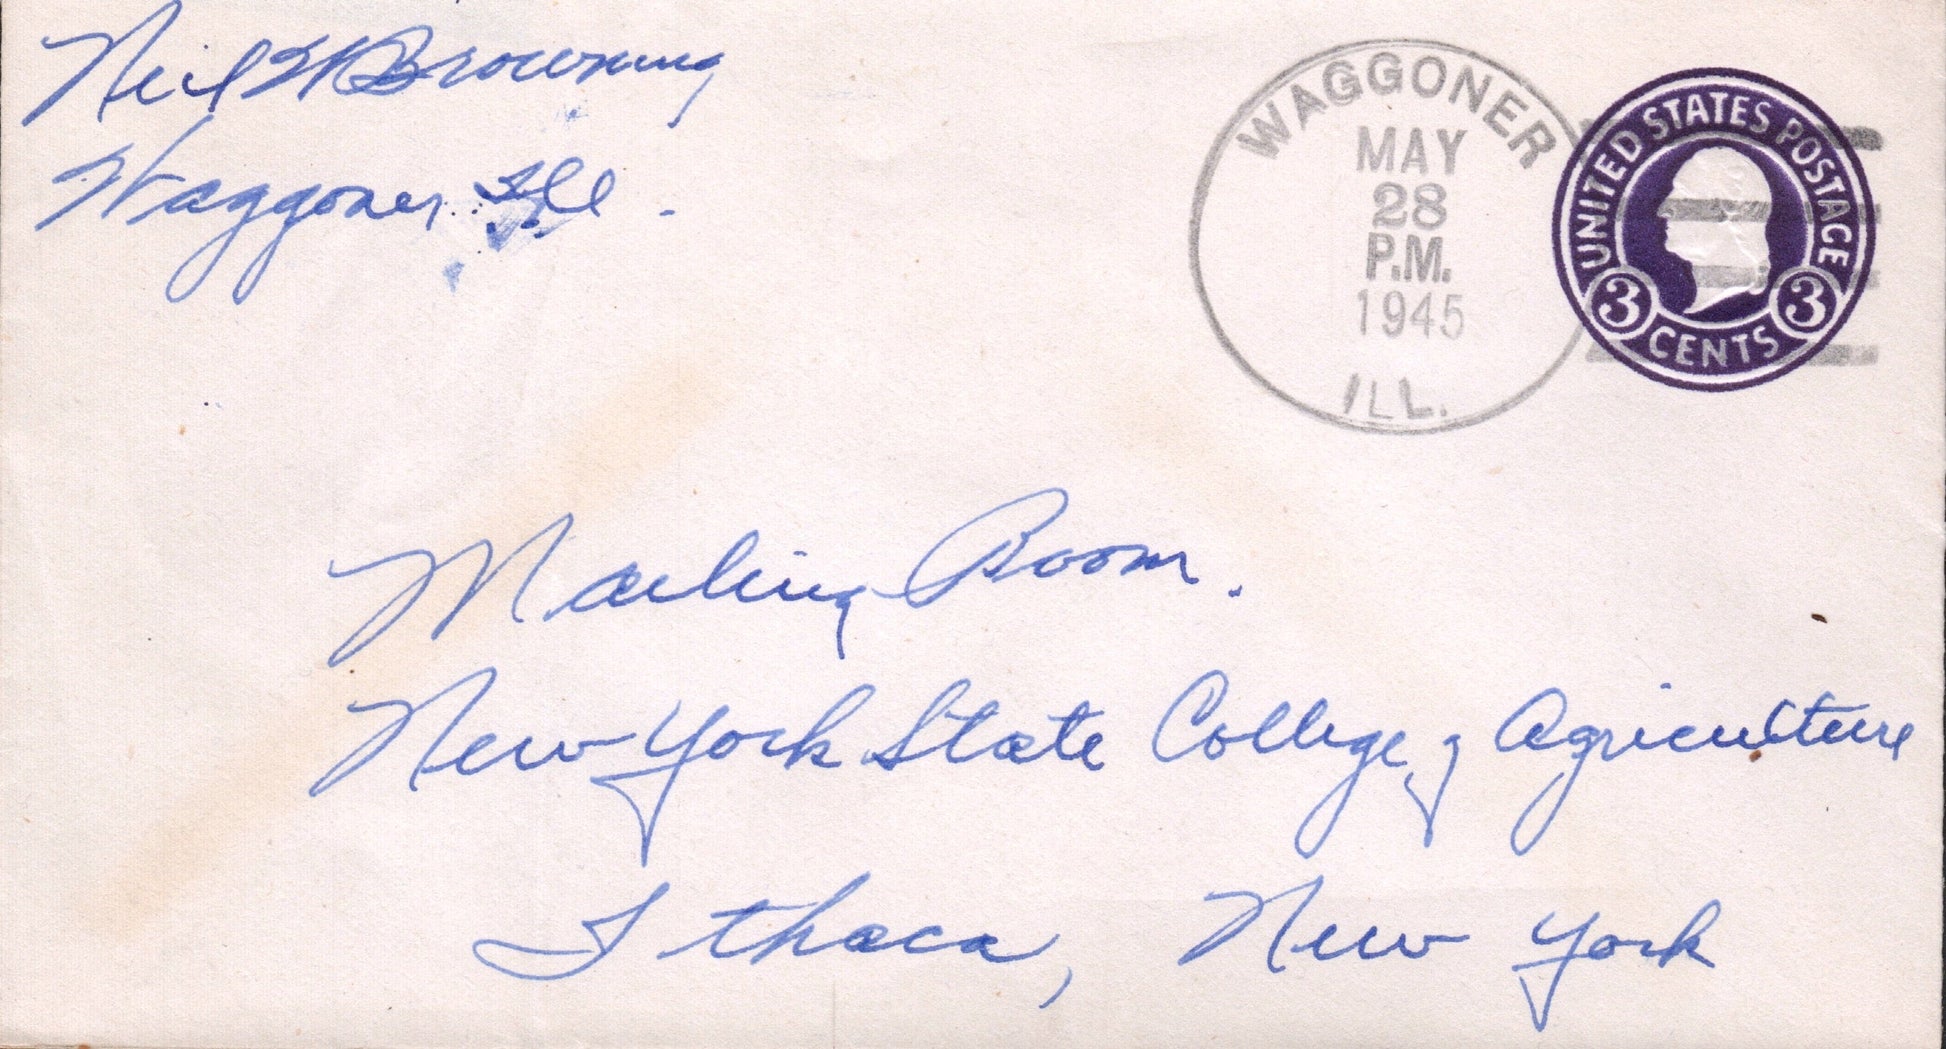 Neil W Browning
Waggoner Ill.
WAGGONER
MAY
28
P.M.
1945
ILL.
UNITED STATES POSTAGE
3 CENTS 3
Mailing Room.
New York State College of Agriculture
Ithaca, New York